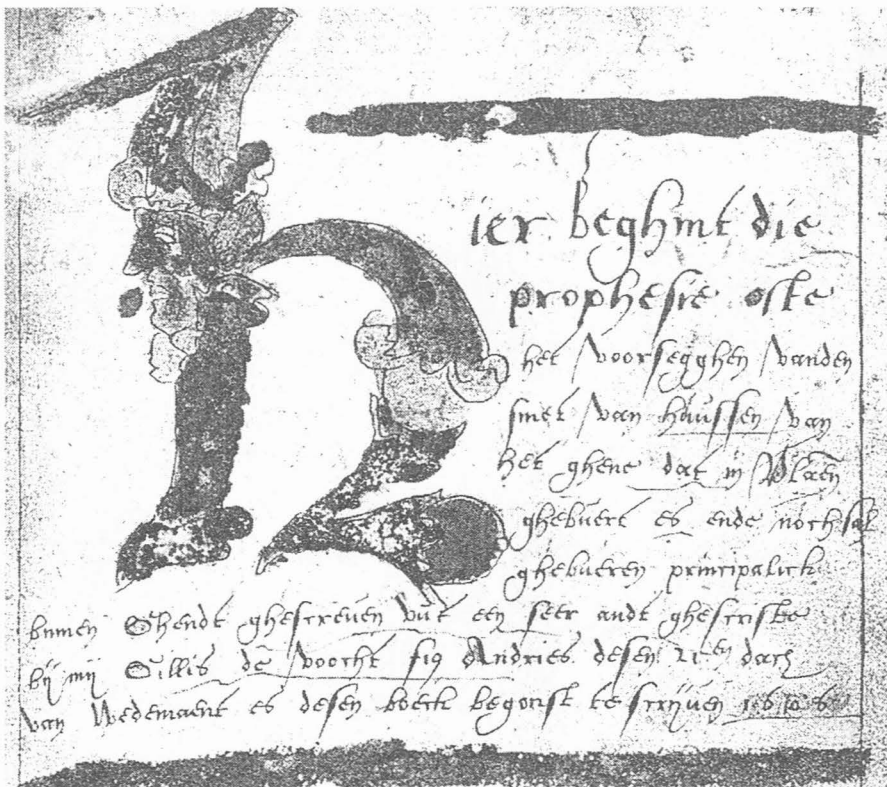 Hier beghint die
prophesie ofte
het voorsegghen vanden
smet van haussen van
het ghene dat in Vlaen
ghebuert es ende noch sal
ghebueren principalick
binnen Ghendt ghescreven vut een seer audt ghescrifte
bij mij Gillis de voocht fig Andries desen 21en dach
van Wedemaent es desen boeck begonst te scrijven